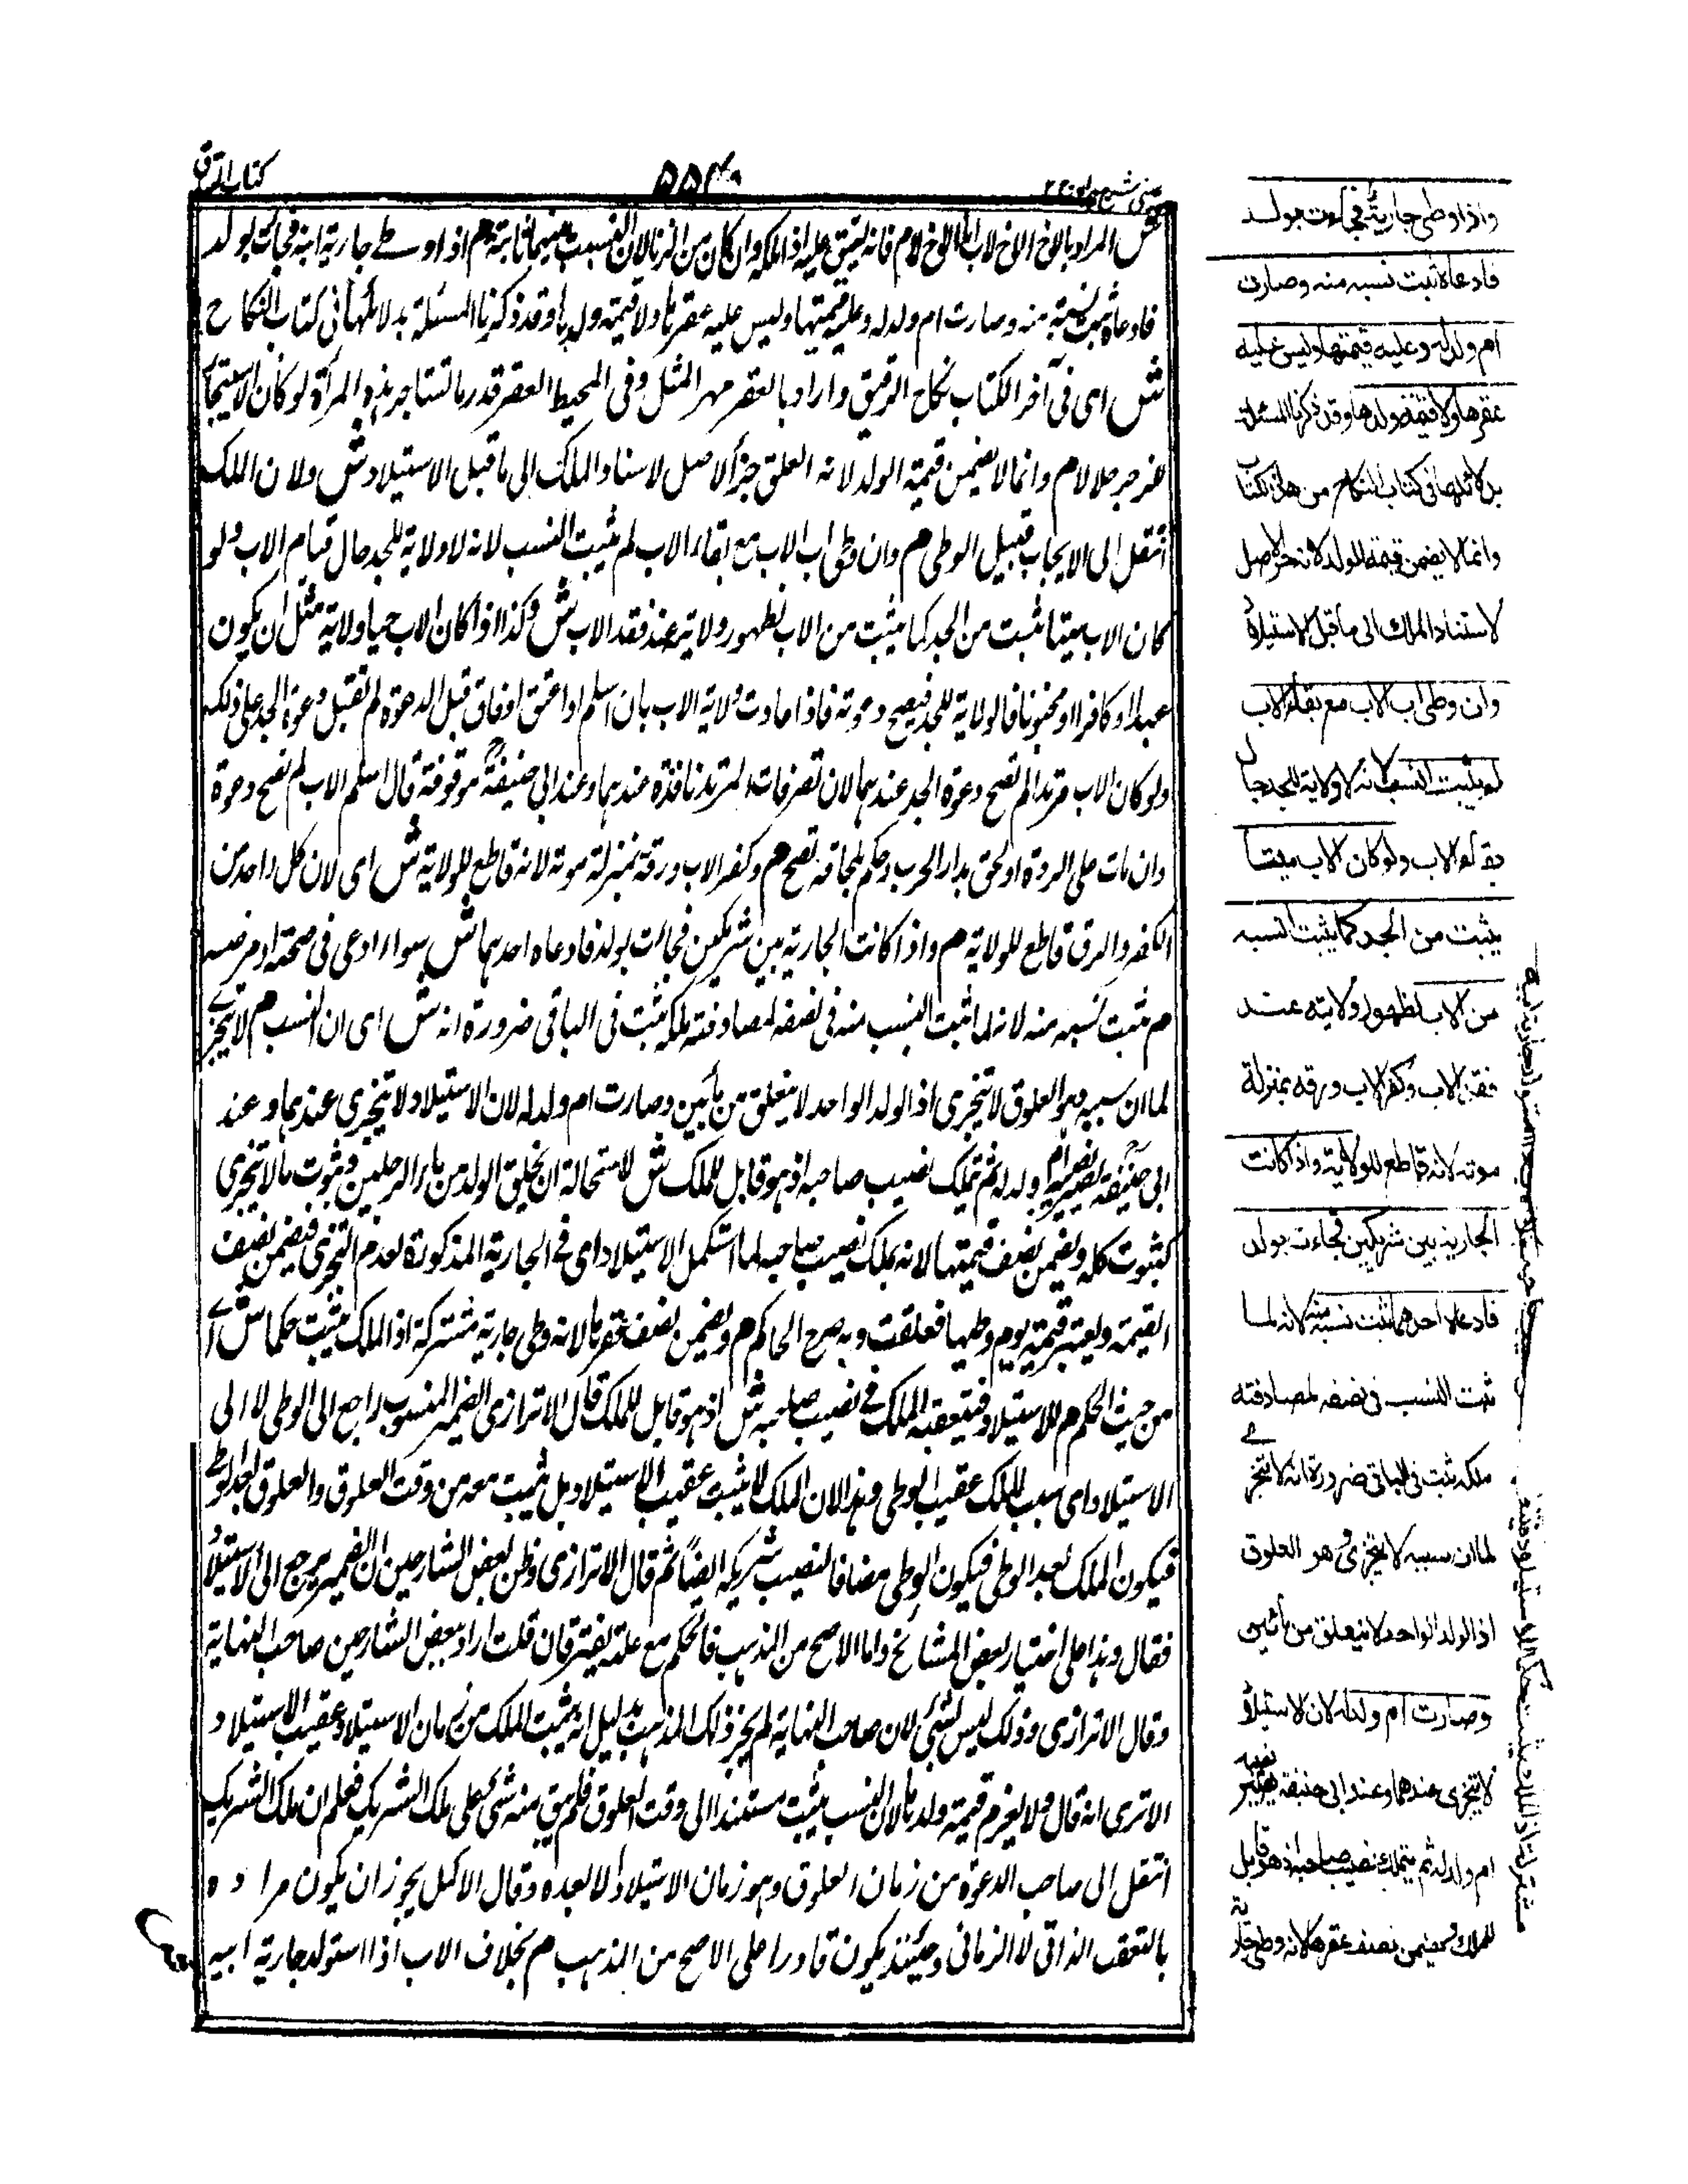 كتاب العتاق
٥٥٤
عينى شرح هدايه ج ٢
ش المراد بالاخ الاخ لاب اما الاخ لام فانه يعتق عليه اذا ملكه وان كان من الزنا لان النسبة بينهما ثابتة م اذا وطے جارية ابنه فجاءت بولد
فادعاه ثبت نسبه منه وصارت ام ولد له وعليه قيمتها وليس عليه عقرها ولا قيمة ولدها وقد ذكرنا المسئلة بدلائلها فى كتاب النكاح
ش اى فى آخر الكتاب نكاح الرقيق واراد بالعقر مهر المثل وفى المحيط العقر قدر ما تستاجر هذه المرأة لو كان الاستيجار
م وانما لا يضمن قيمة الولد لانه انعلق حر الاصل لاستناد الملك الى ما قبل الاستيلاد ش ولان الملك
انتقل الى الايجاب قبيل الوطى م وان وطى اب الاب مع بقاء الاب لم يثبت النسب لانه لا ولاية للجد حال قيام الاب ولو
كان الاب ميتا ثبت من الجد كما يثبت من الاب لظهور ولايته عند فقد الاب ش وكذا اذا كان الاب حيا ولاية مثل ان يكون
عبدا او كافرا او مجنونا فالولاية للجد فيصح دعوته فاذا عادت ولاية الاب بان اسلم او اعتق او فاق قبل الدعوة لم تقبل دعوة الجد على ذلك
ولو كان الاب مرتدا لم تصح دعوة الجد عندهما لان تصرفات المرتد نافذة عندهما وعند ابى حنيفة موقوفة قال اسلم الاب لم تصح دعوة
وان مات على الردة او لحق بدار الحرب وحكم بلحاقه تصح م وكفر الاب ورقه بمنزلة موته لانه قاطع للولاية ش اى لان كل واحد من
الكفر والرق قاطع للولاية م واذا كانت الجارية بين شريكين فجاءت بولد فادعاه احدهما ش سواء ادعى فى صحته او مرضه
م ثبت نسبه منه لانه لما ثبت النسب منه فى نصفه لمصادفته ملكه ثبت فى الباقى ضرورة انه ش اى ان النسب م لا يتجزے
لما ان سببه وهو العلوق لا يتجزى اذ الولد الواحد لا يتعلق من مائين وصارت ام ولد له لان الاستيلاد لا يتجزى عندهما وعند
ابى حنيفة يصير نصيبه ام ولد له ثم يتملك نصيب صاحبه اذ هو قابل للملك ش لاستحالة ان يخلق الولد من ماء الرجلين وثبوت ما لا يتجزى
كثبوت كله ويضمن نصف قيمتها لانه يملك نصيب صاحبه لما استكمل الاستيلاد اى فى الجارية المذكورة لعدم التجزى فيضمن نصف
القيمة ويعتبر قيمته يوم وطيها فعلقت وبه صرح الحاكم م ويضمن نصف عقرها لانه وطى جارية مشتركة اذ الملك يثبت حكما ش اے
من حيث الحكم م للاستيلاد فيتعقبه الملك فے نصيب صاحبه ش اذ هو قابل للملك قال الاترازى الضمير المنسوب راجع الى الوطى لا الى
الاستيلاد اى سبب الملك عقيب الوطى وهذا لان الملك لا يثبت عقيب الاستيلاد بل يثبت معه من وقت العلوق والعلوق بعد الوطے
فيكون الملك بعد الوطى فيكون الوطى مضافا لنصيب شريكه ايضا ثم قال الاترازى وظن بعض الشارحين ان الضمير يرجع الى الاستيلاد
فقال وهذا على اختيار بعض المشائخ واما الاصح من المذهب فالحكم مع علته يفترقان قلت اراد ببعض الشارحين صاحب النهاية
وقال الاترازى وذلك ليس بشئ لان صاحب النهاية لم يخر ذلك المذهب بدليل انه يثبت الملك من زمان الاستيلاد عقيب الاستيلاد
الا ترى انه قال ولا يغرم قيمة ولدها لان النسب يثبت مستندا الى وقت العلوق فلم يبق منه شئ على ملك الشريك فعلم ان ملك الشريك
انتقل الى صاحب الدعوة من زمان العلوق وهو زمان الاستيلاد لا بعده وقال الاكمل يجوز ان يكون مراده
بالتعقب الذاتى لا الزمانى وحينئذ يكون قادرا على الاصح من المذهب م بخلاف الاب اذا استولد جارية ابنه
واذا وطى جارية ابنه فجاءت بولد
فادعاه ثبت نسبه منه وصارت
ام ولد له وعليه قيمتها وليس عليه
عقرها ولا قيمة ولدها وقد ذكرنا المسئلة
بدلائلها فى كتاب النكاح من هذا الكتاب
وانما لا يضمن قيمة الولد لانه حر الاصل
لاستناد الملك الى ما قبل الاستيلاد
وان وطى اب الاب مع بقاء الاب
لم يثبت النسب لانه لا ولاية للجد حال
بقاء الاب ولو كان الاب ميتا
يثبت من الجد كما يثبت النسبه
من الاب لظهور ولايته عند
فقد الاب وكفر الاب ورقه بمنزلة
موته لانه قاطع للولاية واذا كانت
الجارية بين شريكين فجاءت بولد
فادعاه احدهما ثبت نسبه منه لانه لما
ثبت النسب فى نصفه لمصادفته
ملكه ثبت فى الباقى ضرورة انه لا يتجزے
لما ان سببه لا يتجزى وهو العلوق
اذ الولد الواحد لا يتعلق من مائين
وصارت ام ولد له لان الاستيلاد
لا يتجزى عندهما وعند ابى حنيفة يصير نصيبه
ام ولد له ثم يتملك نصيب صاحبه اذ هو قابل
للملك ويضمن نصف عقرها لانه وطى جارية
مشتركة اذ الملك يثبت حكما للاستيلاد فيتعقبه
الملك فى نصيب صاحبه بخلاف الاب اذا استولد جارية ابنه